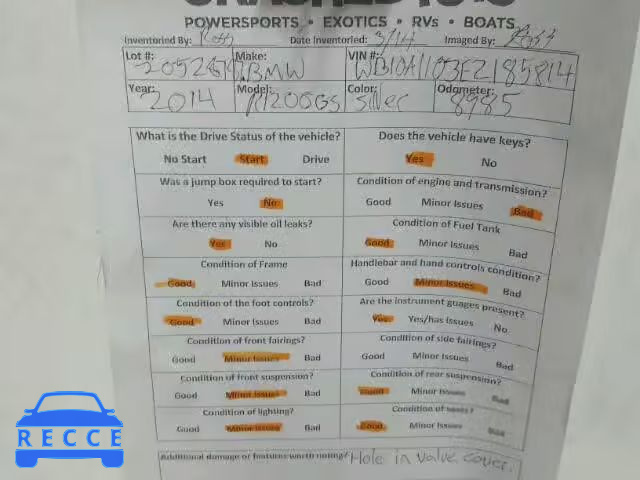 POWERSPORTS • EXOTICS • RVs • BOATS
Inventoried By: Date Inventoried: 3/14 Imaged By:
Lot #: Make: BMW VIN #: WB10A1103EZ185814
Year: 2014 Model: R1200GS Color: silver Odometer: 8985
What is the Drive Status of the vehicle? Does the vehicle have keys?
No Start Start Drive Yes No
Was a jump box required to start? Condition of engine and transmission?
Yes No Good Minor Issues Bad
Are there any visible oil leaks? Condition of Fuel Tank
Yes No Good Minor Issues Bad
Condition of Frame Handlebar and hand controls condition?
Good Minor Issues Bad Good Minor Issues Bad
Condition of the foot controls? Are the instrument guages present?
Good Minor Issues Bad Yes Yes/has issues No
Condition of front fairings? Condition of side fairings?
Good Minor Issues Bad Good Minor Issues Bad
Condition of front suspension? Condition of rear suspension?
Good Minor Issues Bad Good Minor Issues Bad
Condition of lighting? Condition of seats?
Good Minor Issues Bad Good Minor Issues Bad
Additional damage or features worth noting? Hole in valve cover.
RECCE